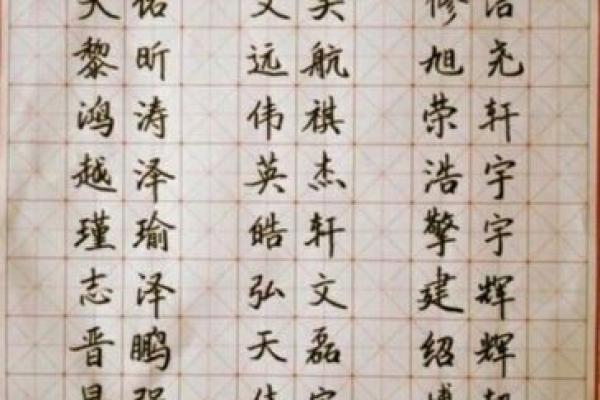 佑 文 修洁
黎昕 远航 旭尧
鸿涛 伟祺 荣轩
越泽 英杰 浩宇
瑾瑜 皓轩 擎宇
志泽 弘文 建辉
晋鹏 天磊 绍辉